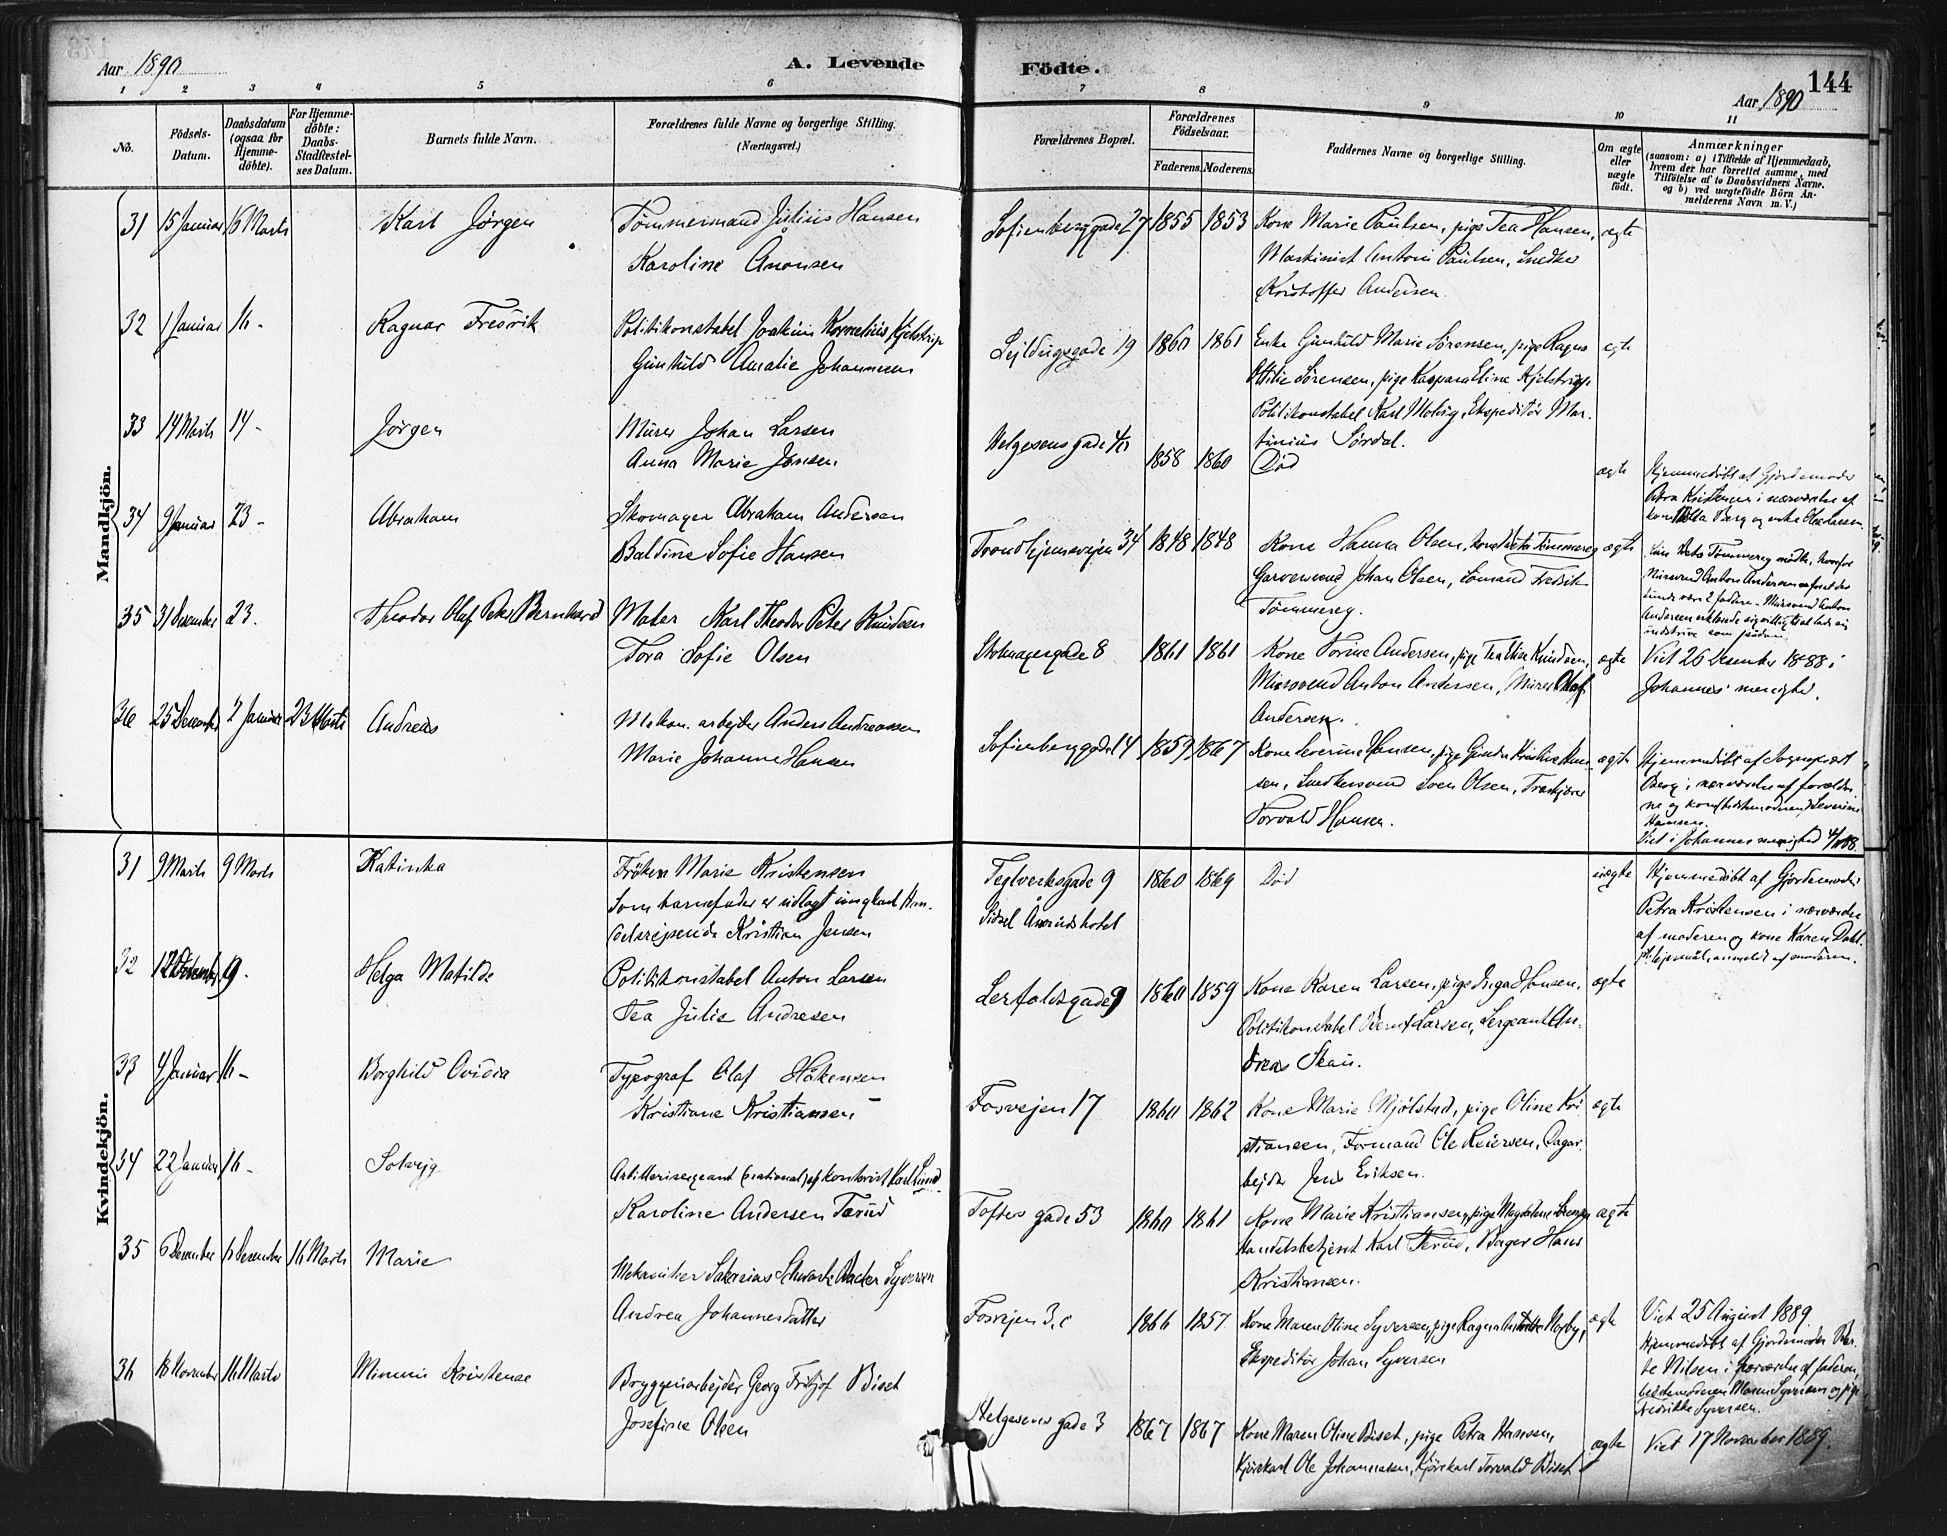 Aar 1890
A. Levende
Födte.
144
Aar 1890
1 2 3 4 5 6 7 8 9 10 11
No.
Födsels-
Datum.
Daabsdatum
(ogsaa for
Hjemme-
döbte).
For Hjemme-
döbte:
Daabs-
Stadfæstel-
ses Datum.
Barnets fulde Navn.
Forældrenes fulde Navne og borgerlige Stilling.
(Næringsvei.)
Forældrenes Bopæl.
Forældrenes
Födselsaar.
Faderens. Moderens.
Faddernes Navne og borgerlige Stilling.
Om ægte
eller
uægte
födt.
Anmærkninger
(saasom: a) i Tilfælde af Hjemmedaab,
hvem der har forrettet samme, med
Tilföielse af to Daabsvidners Navne.
og b) ved uægtefödte Börn An-
melderens Navn m. V.)
Mandkjön.
31 15 Januar 16 Marts Karl Jørgen Tømmermand Julius Hansen
Karoline Aronsen
Sofienberggade 27 1855 1853 Kone Marie Paulsen, pige Tea Hansen, ægte
Maskinist Anton Paulsen, Snedker
Kristoffer Andersen.
32 1 Januar 16 - Ragnar Fredrik Politikonstabel Joakim Kornelius Kjelstrup
Gunhild Amalie Johannesen
Seildugsgade 19 1860 1861 Enke Gunhild Marie Sørensen, pige Ragna ægte
Ottilie Sørensen, pige Kaspara Eline Kjelstrup,
Politikonstabel Karl Molvig, Ekspeditør Mar-
tinius Sørdal.
33 14 Marts 14 - Jørgen Murer Johan Larsen
Anna Marie Jensen
Helgesens gade 1858 1860 Død ægte
Hjemmedøbt af Gjordemoder
Petra Kristensen i nærværelse af
kone Berg og enke Larsen
34 9 Januar 23 - Abraham Skomager Abraham Andersen
Baldine Sofie Hansen
Trondhjemsveien 34 1848 1848 Kone Hanna Olsen, kone Tømmereg ægte
Garversvend Johan Olsen, Sømand Fredrik
Tømmereg.
35 31 Desember 23. Theodor Olaf Peter Bernhard Maler Karl Theodor Peter Knudsen
Tora Sofie Olsen
Stolmagergade 8 1861 1861 Kone Torine Andersen, pige Tea Elise Knudsen, ægte
Mursvend Anton Andersen, Murer Olaf
Andersen.
Viet 26 Desember 1888 i
Johannes' menighed.
36 25 December 2 Januar 23 Marts Andreas Mekan. arbejder Anders Andreassen
Marie Johanne Hansen
Sofienberggade 14 1859 1867 Kone Severine Hansen, pige Gunda Kristine Han- ægte
sen, Snedkersvend Sven Olsen, Træskjærer
Torvald Hansen.
Hjemmedøbt af Sogneprest
Berg i nærværelse af forældre-
ne og kone Severine
Hansen.
Viet i Johannes menighed
Kvindekjön.
31 9 Marts 9 Marts Katinka Frøken Marie Kristensen
Som barnefader er udlagt ungkarl Han-
delsrejsende Kristian Jensen
Teglverksgade 9 1860 1869 Død uægte
Sidsel Hotel
Hjemmedøbt af Gjordemoder
Petra Kristensen i nærværelse
af moderen og kone Karen Dahl.
anmeldt af moderen.
32 12 Desember 9. Helga Matilde Politikonstabel Anton Larsen
Tea Julie Andresen
Lerfaldsgade 9 1860 1859 Kone Karen Larsen, pige Inga Hansen, ægte
Politikonstabel Bernt Larsen, Sergeant An-
dreas Skau.
33 4 Januar 16 - Borghild Ovidia Typograf Olaf Håkensen
Kristiane Kristiansen
Fosvejen 17 1860 1862 Kone Marie Mjølstad, pige Oline Kri- ægte
stiansen, Formand Ole Reiersen, Dagar-
bejder Jens Eriksen.
34 22 Januar 16 - Solveig Artillerisergeant (national) og kontorist Karl Lund
Karoline Andersen Terud
Toftes gade 53 1860 1861 Kone Marie Kristiansen, pige Magdalene ægte
Handelsbetjent Karl Terud, Bager Hans
Kristiansen.
35 6 December 6 Desember 16 Marts Marie Mekaniker Sakarias Schwartz Syversen
Andrea Johannesdatter
Fosvejen 3.c 1866 1857 Kone Maren Oline Syversen, pige Ragna Norby, ægte
Ekspeditør Johan Syversen
Viet 25 August 1889
Hjemmedøbt af Gjordemoder Ber-
te Nilsen i nærværelse af faderen,
bestemoderen Maren Syversen og pige
Fredrikke Syversen.
36 18 November 16 Marts Minnie Kristense Bryggeriarbejder Georg Fritjof Biset
Josefine Olsen
Helgesens gade 3 1867 1867 Kone Maren Oline Biset, pige Petra Hansen, ægte
Kjørekarl Ole Johannesen, Kjørekarl Torvald Biset
Viet 17 November 1889.